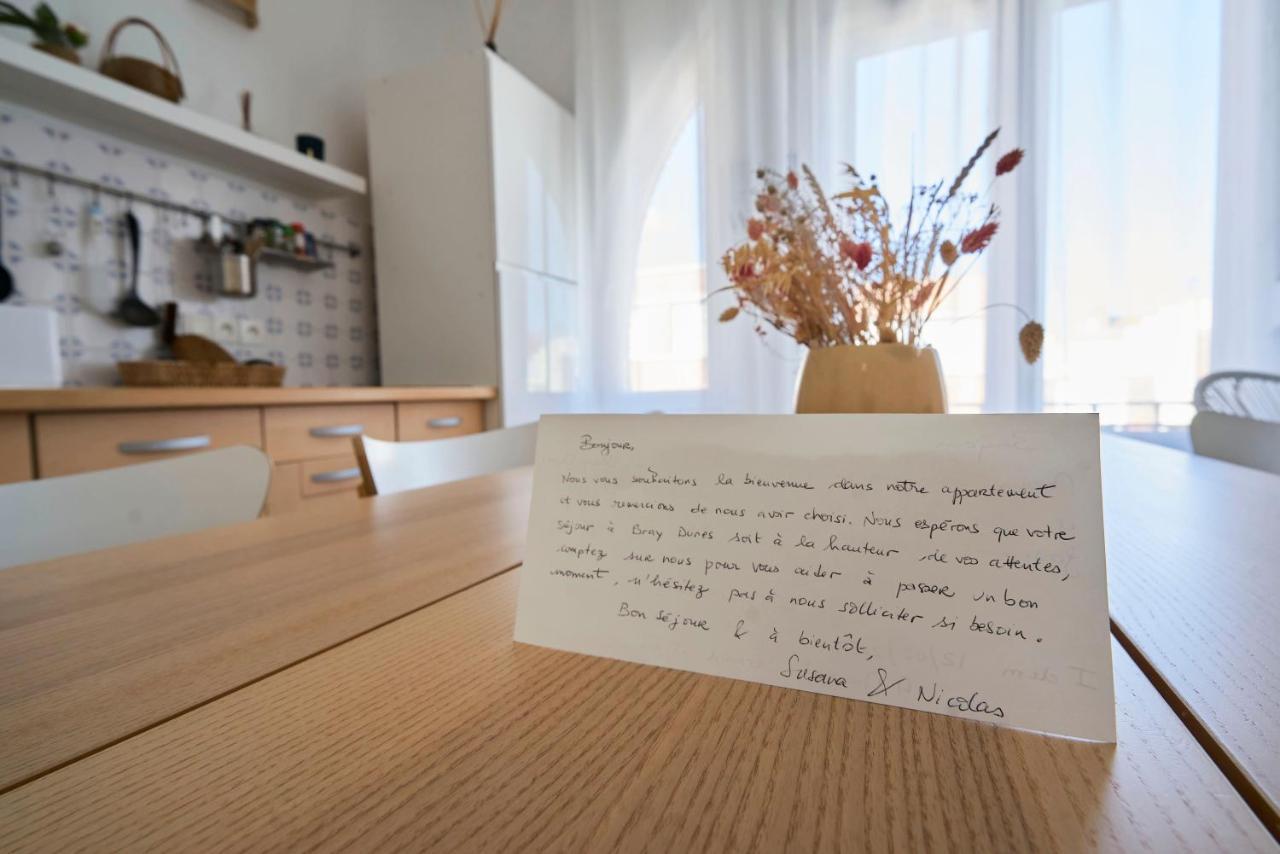 Bonjour,
Nous vous souhaitons la bienvenue dans notre appartement
et vous remercions de nous avoir choisi. Nous espérons que votre
séjour à Bray Dunes soit à la hauteur de vos attentes,
comptez sur nous pour vous aider à passer un bon
moment, n'hésitez pas à nous solliciter si besoin.
Bon séjour & à bientôt,
Susana & Nicolas